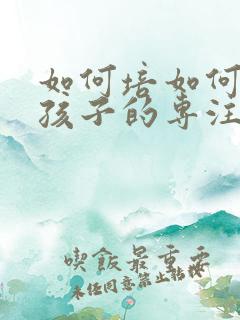 如何培如何
孩子的专注
喫飯最重要
未任同意禁止转授